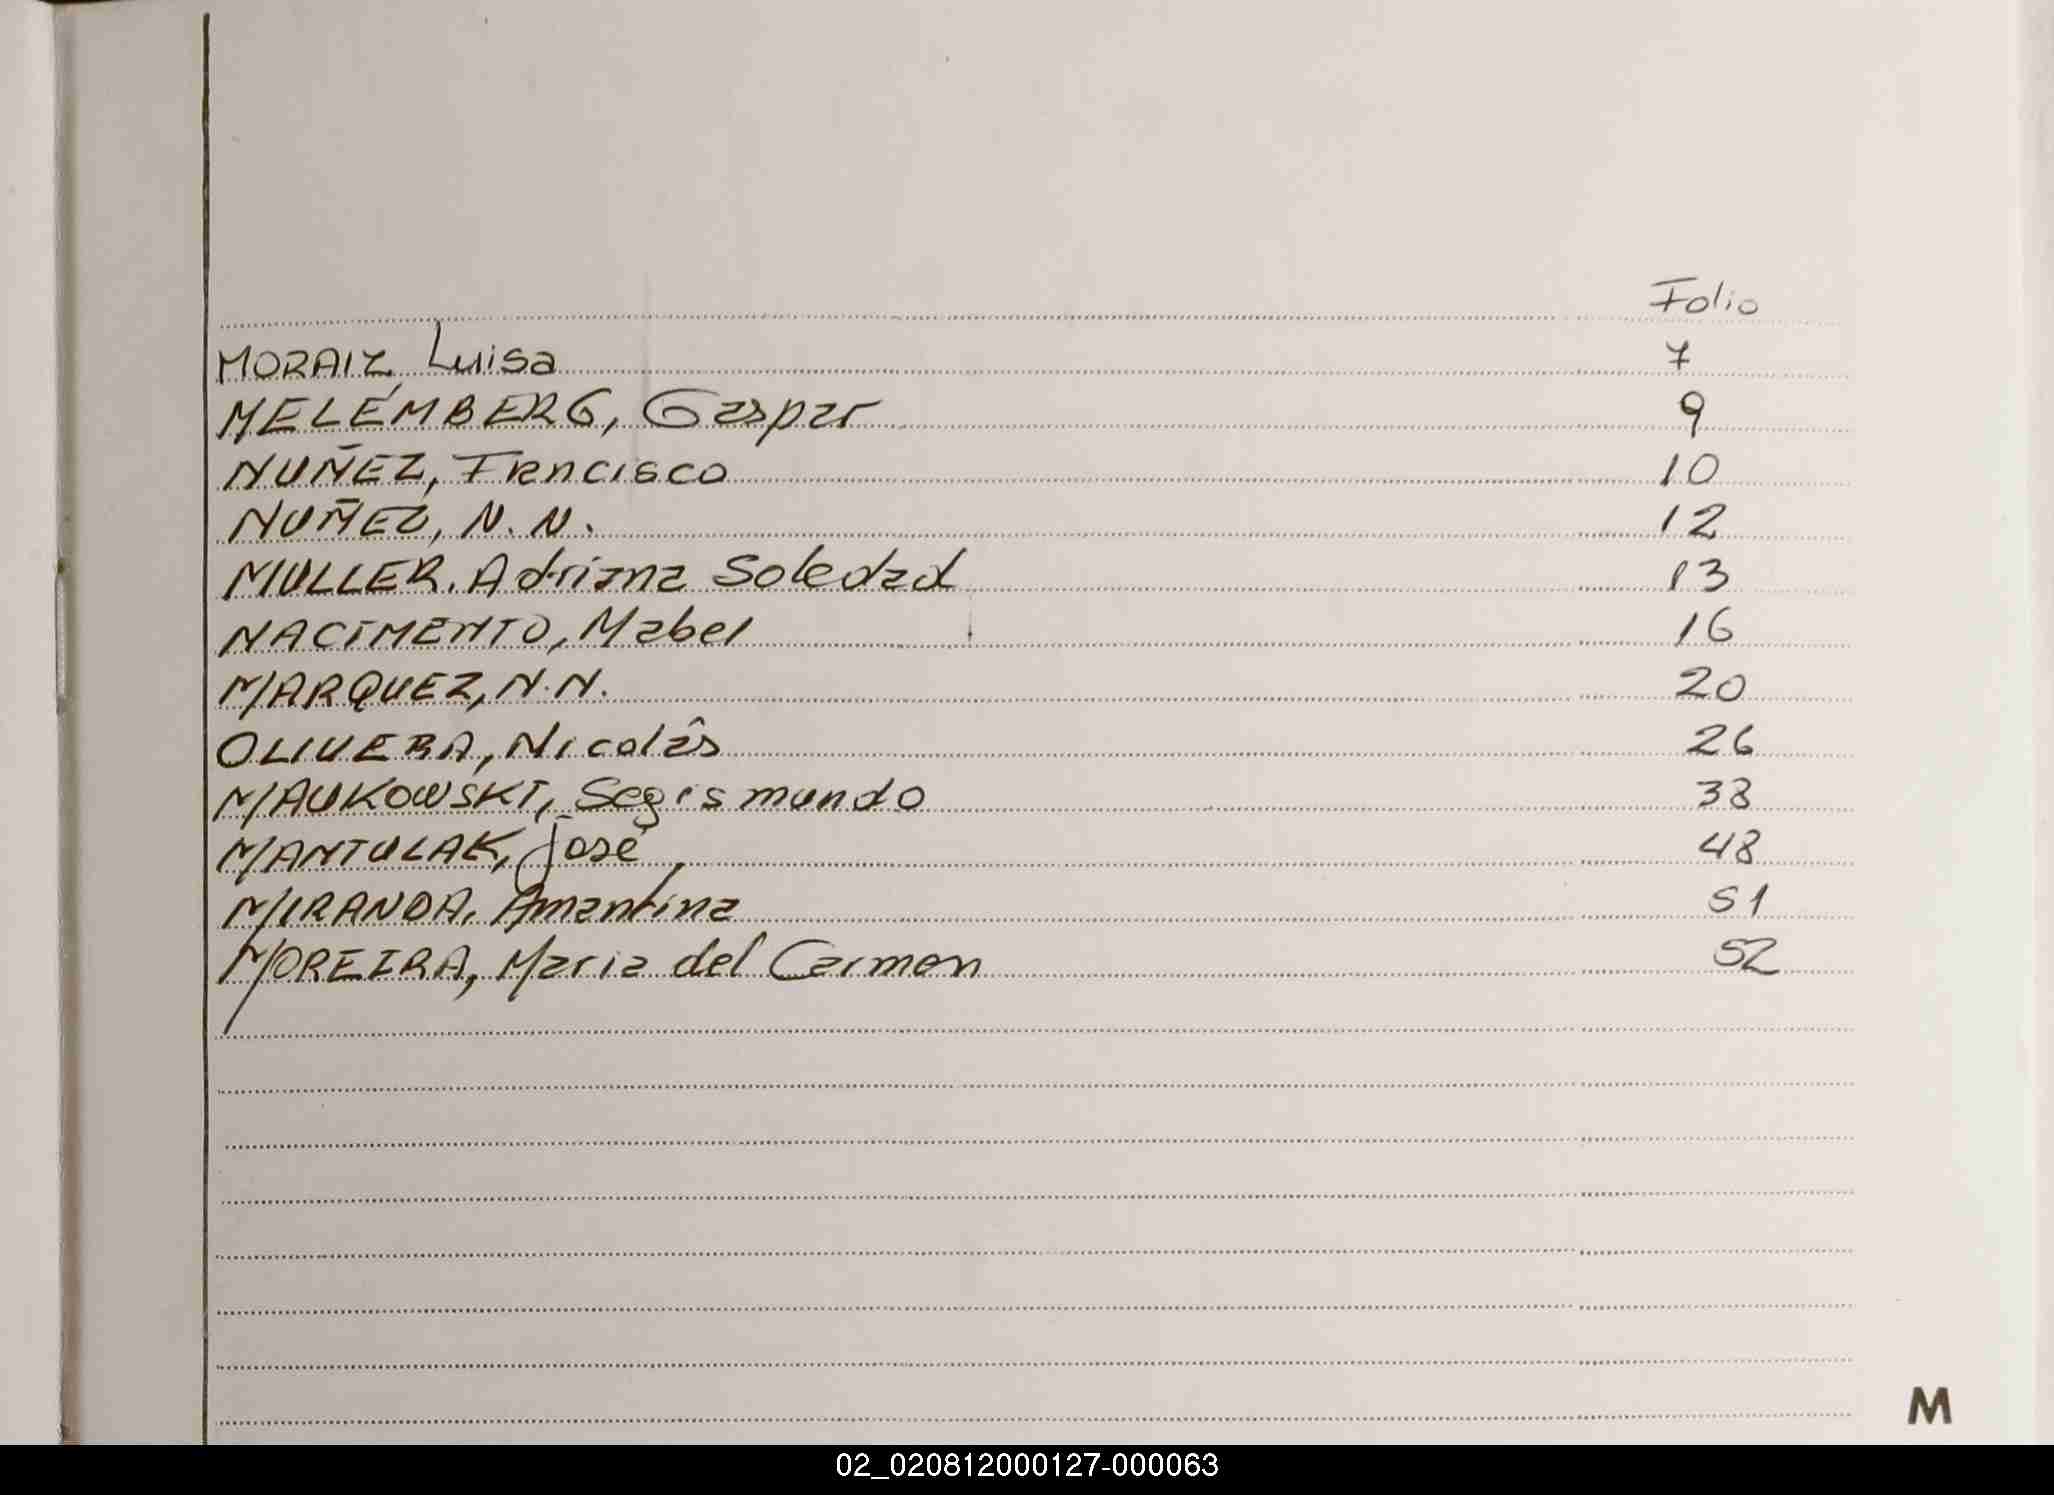 Folio
MORAIZ Luisa 7
MELÉMBERG, Gaspar 9
NUÑEZ, Frncisco 10
NUÑEZ, N. N. 12
MULLER. Adriana Soledad 13
NACIMENTO, Mabel 16
MARQUEZ, N. N. 20
OLIVERA, Nicolâs 26
MAUKOWSKI, Segismundo 38
MANTULAK, José 48
MIRANDA, Amantina 51
MOREIRA, Maria del Carmen 52
M
02_020812000127-000063